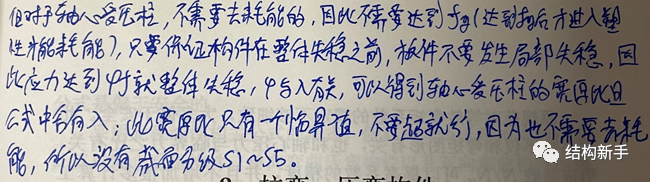 但对于轴心受压柱,不需要去耗能的,因此不需要达到fy(达到fy后才进入塑
性才能耗能),只要保证构件在整体失稳之前,板件不要发生局部失稳,因
此应力达到φf就整体失稳,φ与λ有关,可以得到轴心受压柱的宽厚比且
公式中含有λ;此宽厚比只有一个临界值,不要超就行,因为也不需要去耗
能,所以没有截面分级S1~S5。
结构新手